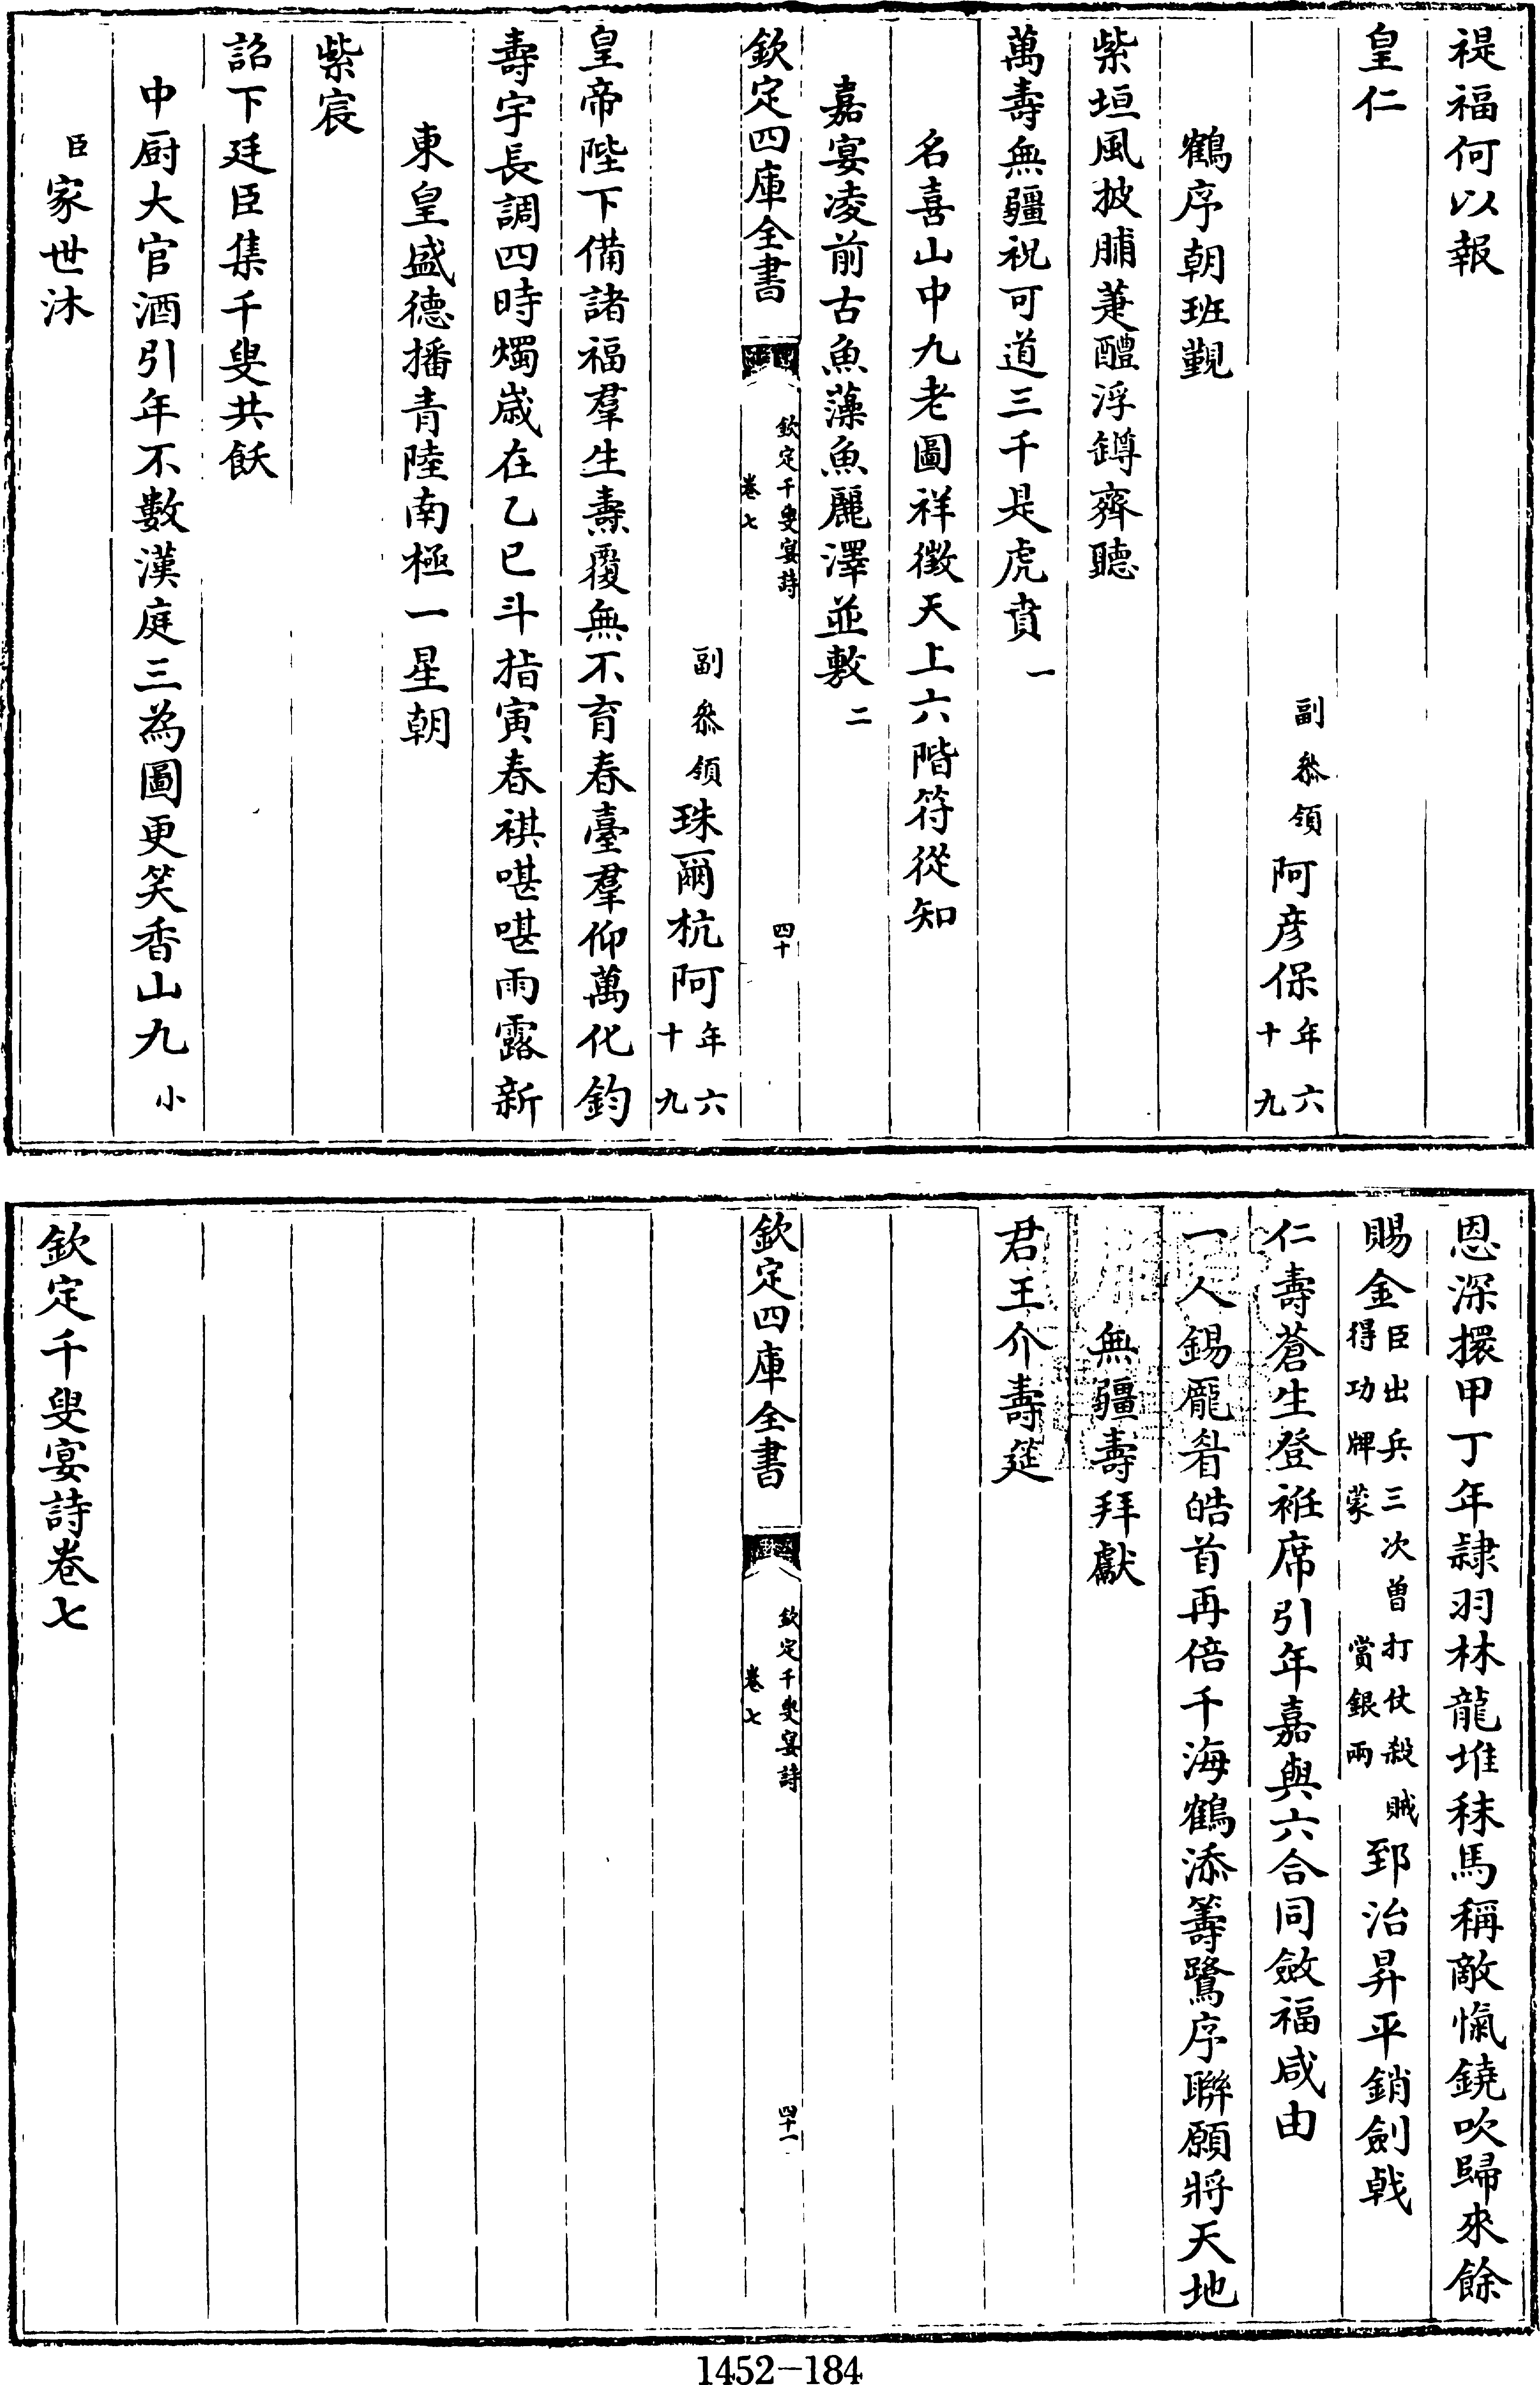 禔福何以報
皇仁
副叅領阿彦保年六十九
鶴序朝班覲
紫垣風披脯萐醴浮罇齊聽
萬壽無疆祝可道三千是虎賁一
名喜山中九老圖祥徵天上六階符從知
嘉宴凌前古魚藻魚麗澤並敷二
欽定四庫全書
欽定千叟宴詩
卷七
四十
副叅領珠爾杭阿年六十九
皇帝陛下備諸福羣生燾覆無不育春臺羣仰萬化鈞
壽宇長調四時燭嵗在乙巳斗指寅春祺啿啿雨露新
東皇盛德播青陸南極一星朝
紫宸
詔下廷臣集千叟共飫
中厨大官酒引年不數漢庭三為圖更笑香山九小
臣家世沐
恩深擐甲丁年隷羽林龍堆秣馬稱敵愾鐃吹歸來餘
賜金臣出兵三次曽打仗殺賊得功牌蒙賞銀兩郅治昇平銷劍戟
仁壽蒼生登袵席引年嘉與六合同斂福咸由
一人錫龎眉皓首再倍千海鶴添籌鷺序聯願將天地
無疆壽拜獻
君王介壽筵
欽定四庫全書
欽定千叟宴詩
卷七
四十一
欽定千叟宴詩卷七
1452-184